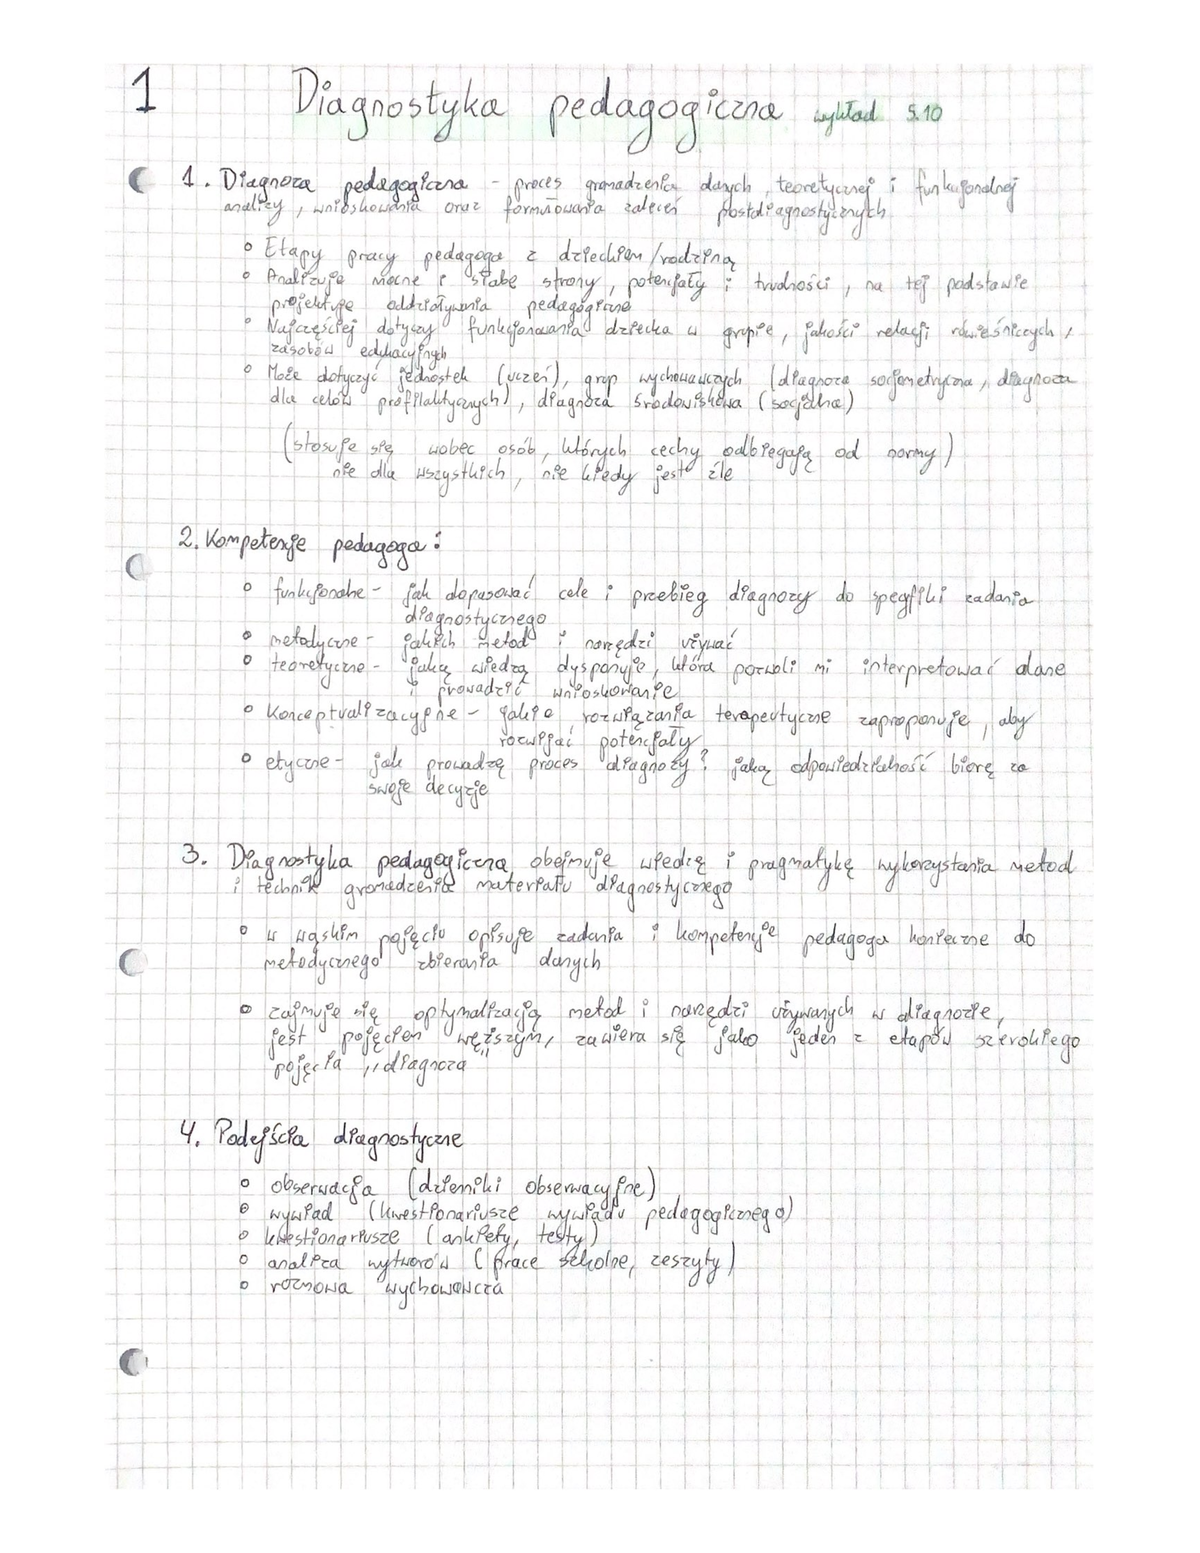 1 Diagnostyka pedagogiczna wykład 5.10
1. Diagnoza pedagogiczna - proces gromadzenia danych, teoretycznej i funkcjonalnej
analizy, wnioskowania oraz formułowania zaleceń postdiagnostycznych
Etapy pracy pedagoga z dzieckiem/rodziną
Analizuje mocne i słabe strony, potencjały i trudności, na tej podstawie
projektuje oddziaływania pedagogiczne
Najczęściej dotyczy funkcjonowania dziecka w grupie, jakości relacji rówieśniczych,
zasobów edukacyjnych
Może dotyczyć jednostek (uczeń), grup wychowawczych (diagnoza socjometryczna, diagnoza
dla celów profilaktycznych), diagnoza środowiskowa (socjalna)
(stosuje się wobec osób, których cechy odbiegają od normy)
nie dla wszystkich, nie kiedy jest źle
2. Kompetencje pedagoga:
funkcjonalne - jak dopasować cele i przebieg diagnozy do specyfiki zadania
diagnostycznego
metodyczne - jakich metod i narzędzi używać
teoretyczne - jaką wiedzą dysponuję, która pozwoli mi interpretować dane
i prowadzić wnioskowanie
Konceptualizacyjne - jakie rozwiązania terapeutyczne zaproponuję, aby
rozwijać potencjały
etyczne - jak prowadzę proces diagnozy? jaką odpowiedzialność biorę za
swoje decyzje
3. Diagnostyka pedagogiczna obejmuje wiedzę i pragmatykę wykorzystania metod
i technik gromadzenia materiału diagnostycznego
w wąskim pojęciu opisuje zadania i kompetencje pedagoga konieczne do
metodycznego zbierania danych
zajmuje się optymalizacją metod i narzędzi używanych w diagnozie,
jest pojęciem węższym, zawiera się jako jeden z etapów szerokiego
pojęcia „diagnoza"
4. Podejścia diagnostyczne
obserwacja (dzienniki obserwacyjne)
wywiad (kwestionariusze wywiadu pedagogicznego)
kwestionariusze (ankiety, testy)
analiza wytworów (prace szkolne, zeszyty)
rozmowa wychowawcza